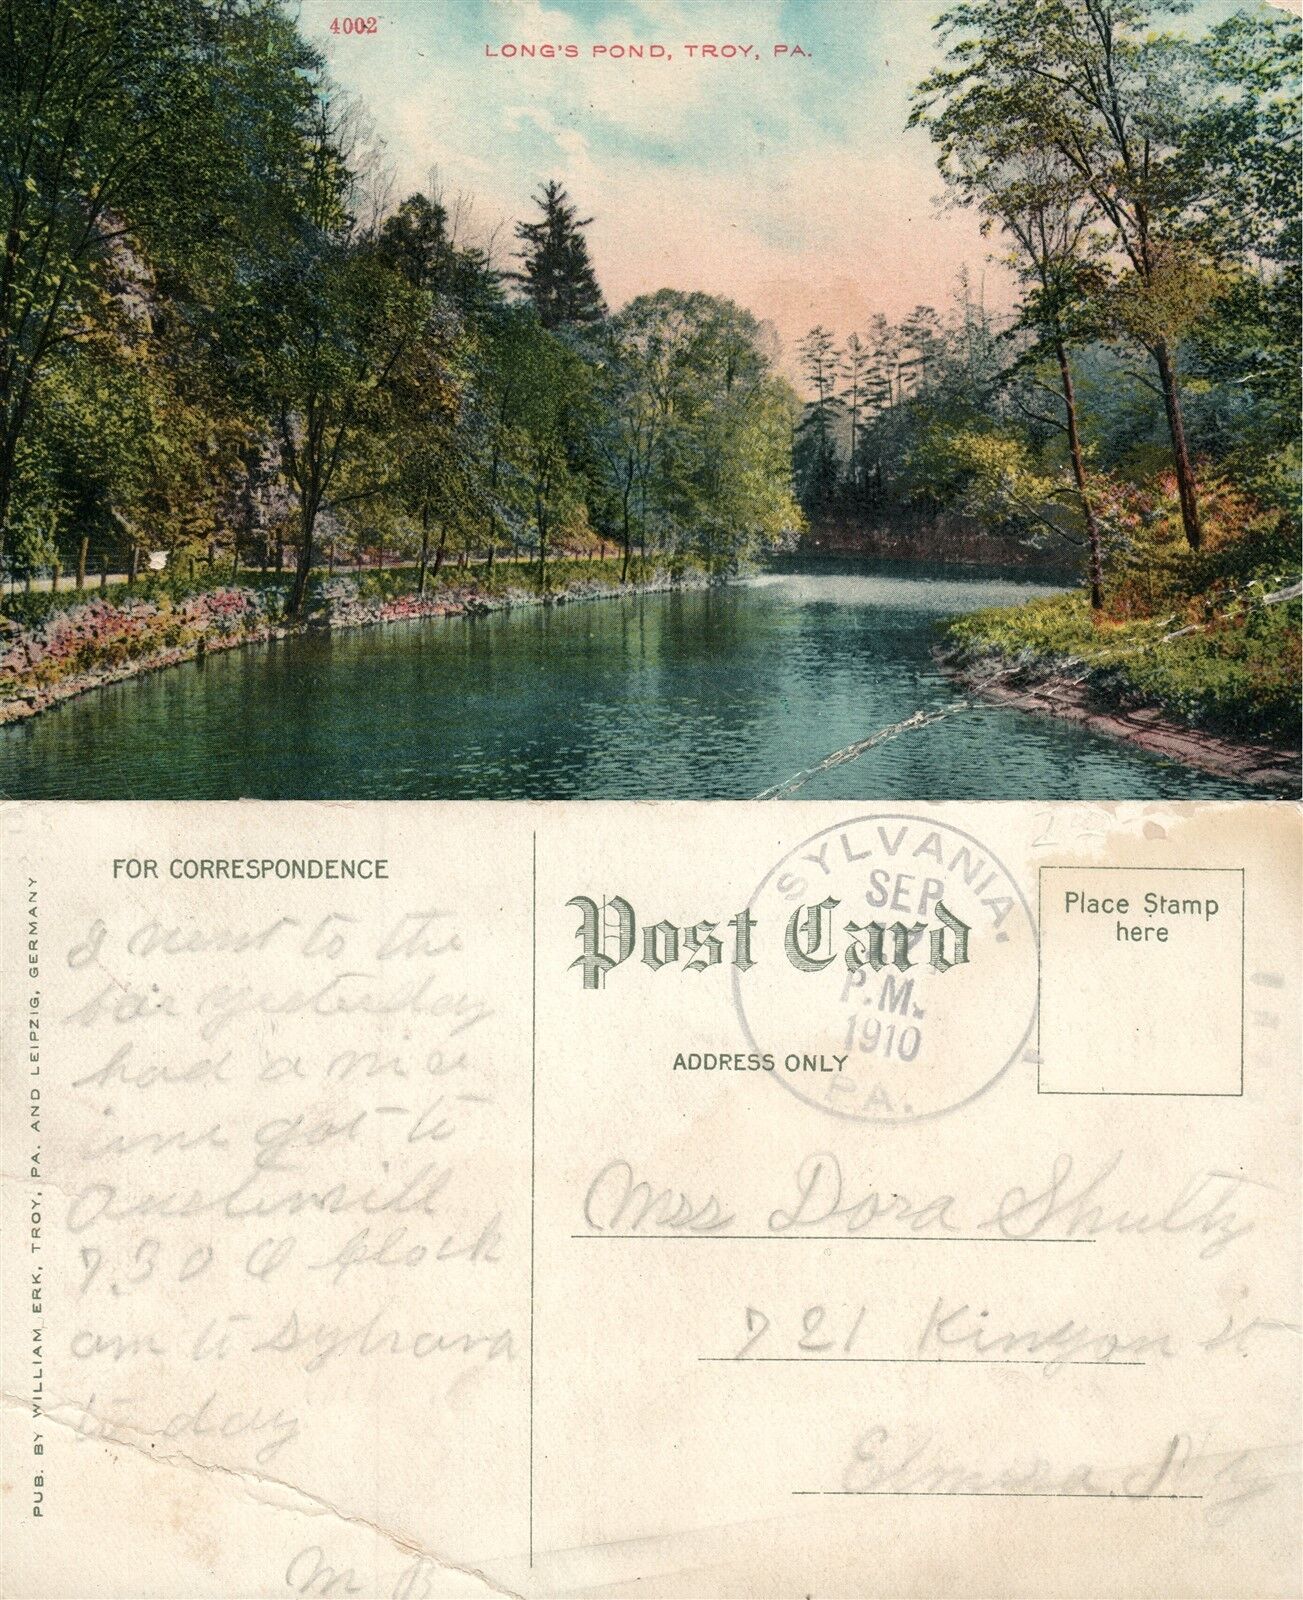 4002
LONG'S POND, TROY, PA.
FOR CORRESPONDENCE
I went to the
fair yesterday
had a nice
time got to
Austinvill
7.30 O Clock
am to Sylvana
to day
M B
PUB. BY WILLIAM ERK, TROY, PA. AND LEIPZIG, GERMANY
Post Card
SYLVANIA.
SEP
P.M.
1910
PA.
Place Stamp
here
ADDRESS ONLY
Mrs Dora Shultz
721 Kinyon st
Elmira N Y